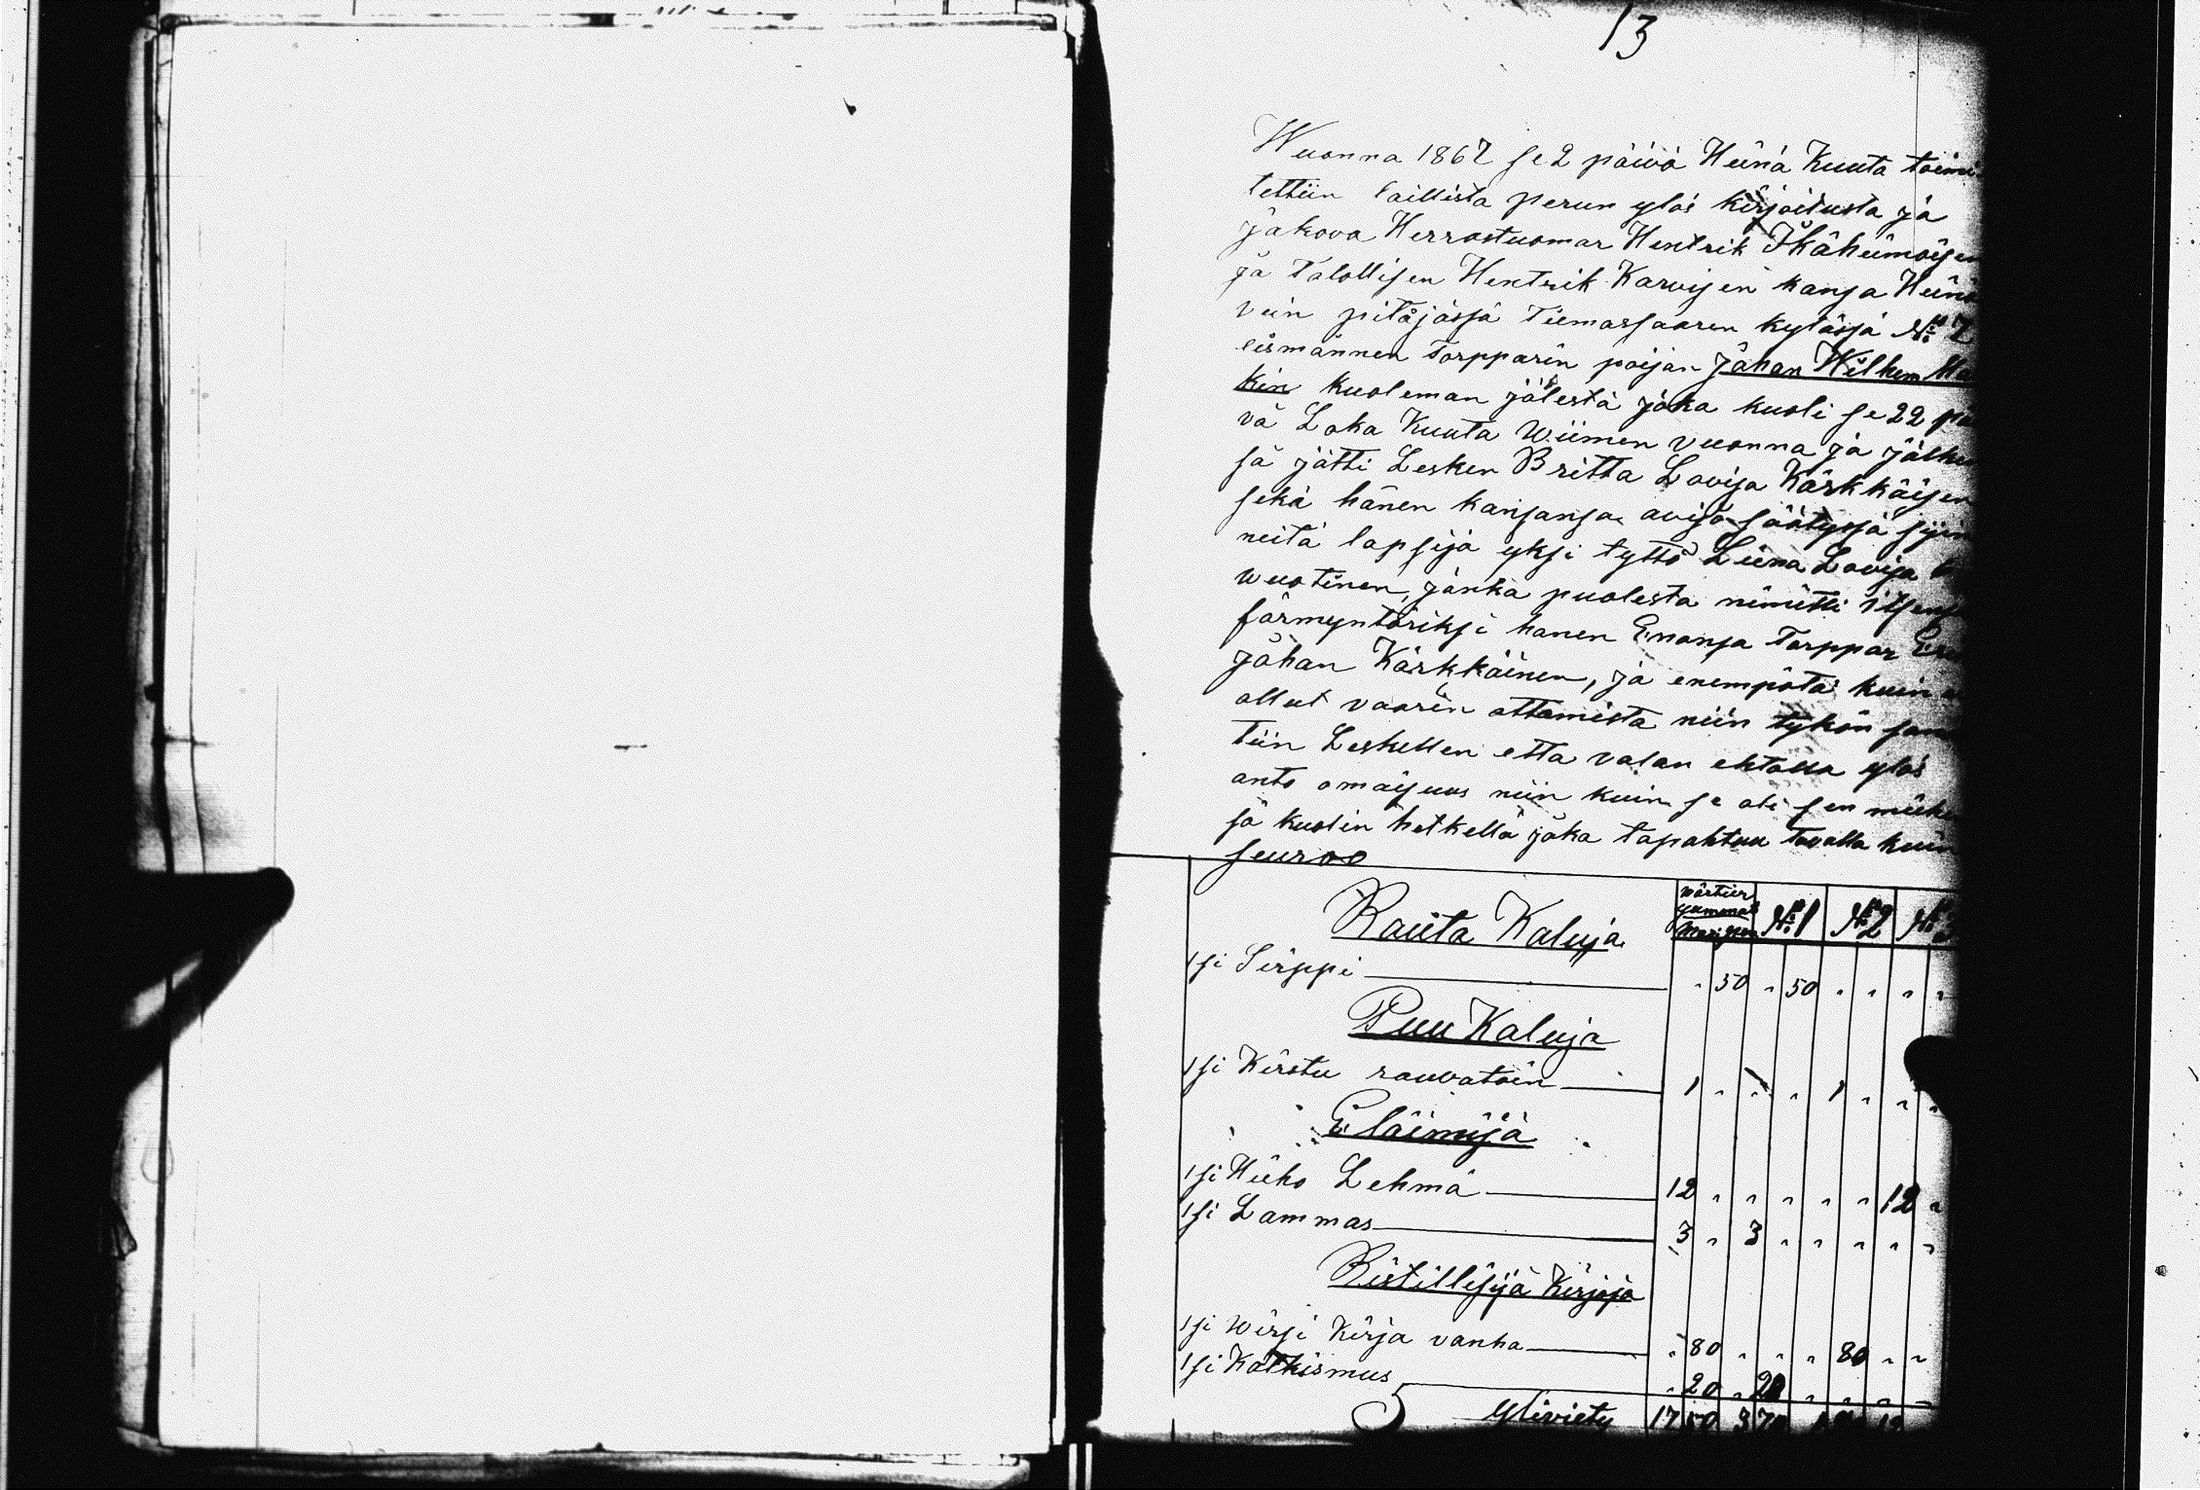 13
Wuonna 1867 se 2 päivä Heinä Kuuta toimi
tettiin laillista perun ylös kirjoitusta ja
jakova Herrastuomar Hentrik Ikäheimoisen
ja Talollisen Hentrik Karvisen kansa Heinä
vein pitäjässä Tiemassaaren kylässä No 7
eismännen Torpparin poijan Johan Wilhem
kin kuoleman jälestä joka kuoli se 22 päi
vä Loka Kuuta Wiimen vuonna ja jälken
sä jätti Lesken Britta Lovisa Kärkkäisen
sekä hänen kansansa aviosäätyssä syn
neitä lapsija yksi tyttö Liena Lovisa
wuotinen, jonka puolesta nimitti itsensä
förmyntäriksi hänen Enonsa Torppar
Johan Kärkkäinen, ja enempätä kuin
ollut vaarin ottamista niin tykön san
tiin Leskellen että valan ehtolla ylös
anto omaisuus niin kuin se oli sen mieh
sä kuolin hetkellä joka tapahtuu tavalla kuin
seuroo
Rauta Kaluja No 1 No 2 No
1si Sirppi " 50 " 50 " " " "
Puu Kaluja
1si Kirstu rauvatoin 1 " " " 1 " " "
Eläimijä
1si Hieho Lehmä 12 " " " " " 12 "
1si Lammas 3 " 3 " " " " "
Ristillisijä Kirjoja
1si Wirsi Kirja vanha " 80 " " " 80 " "
1si Katkismus " 20 " 20 " " " "
Yliviety 17 50 3 70